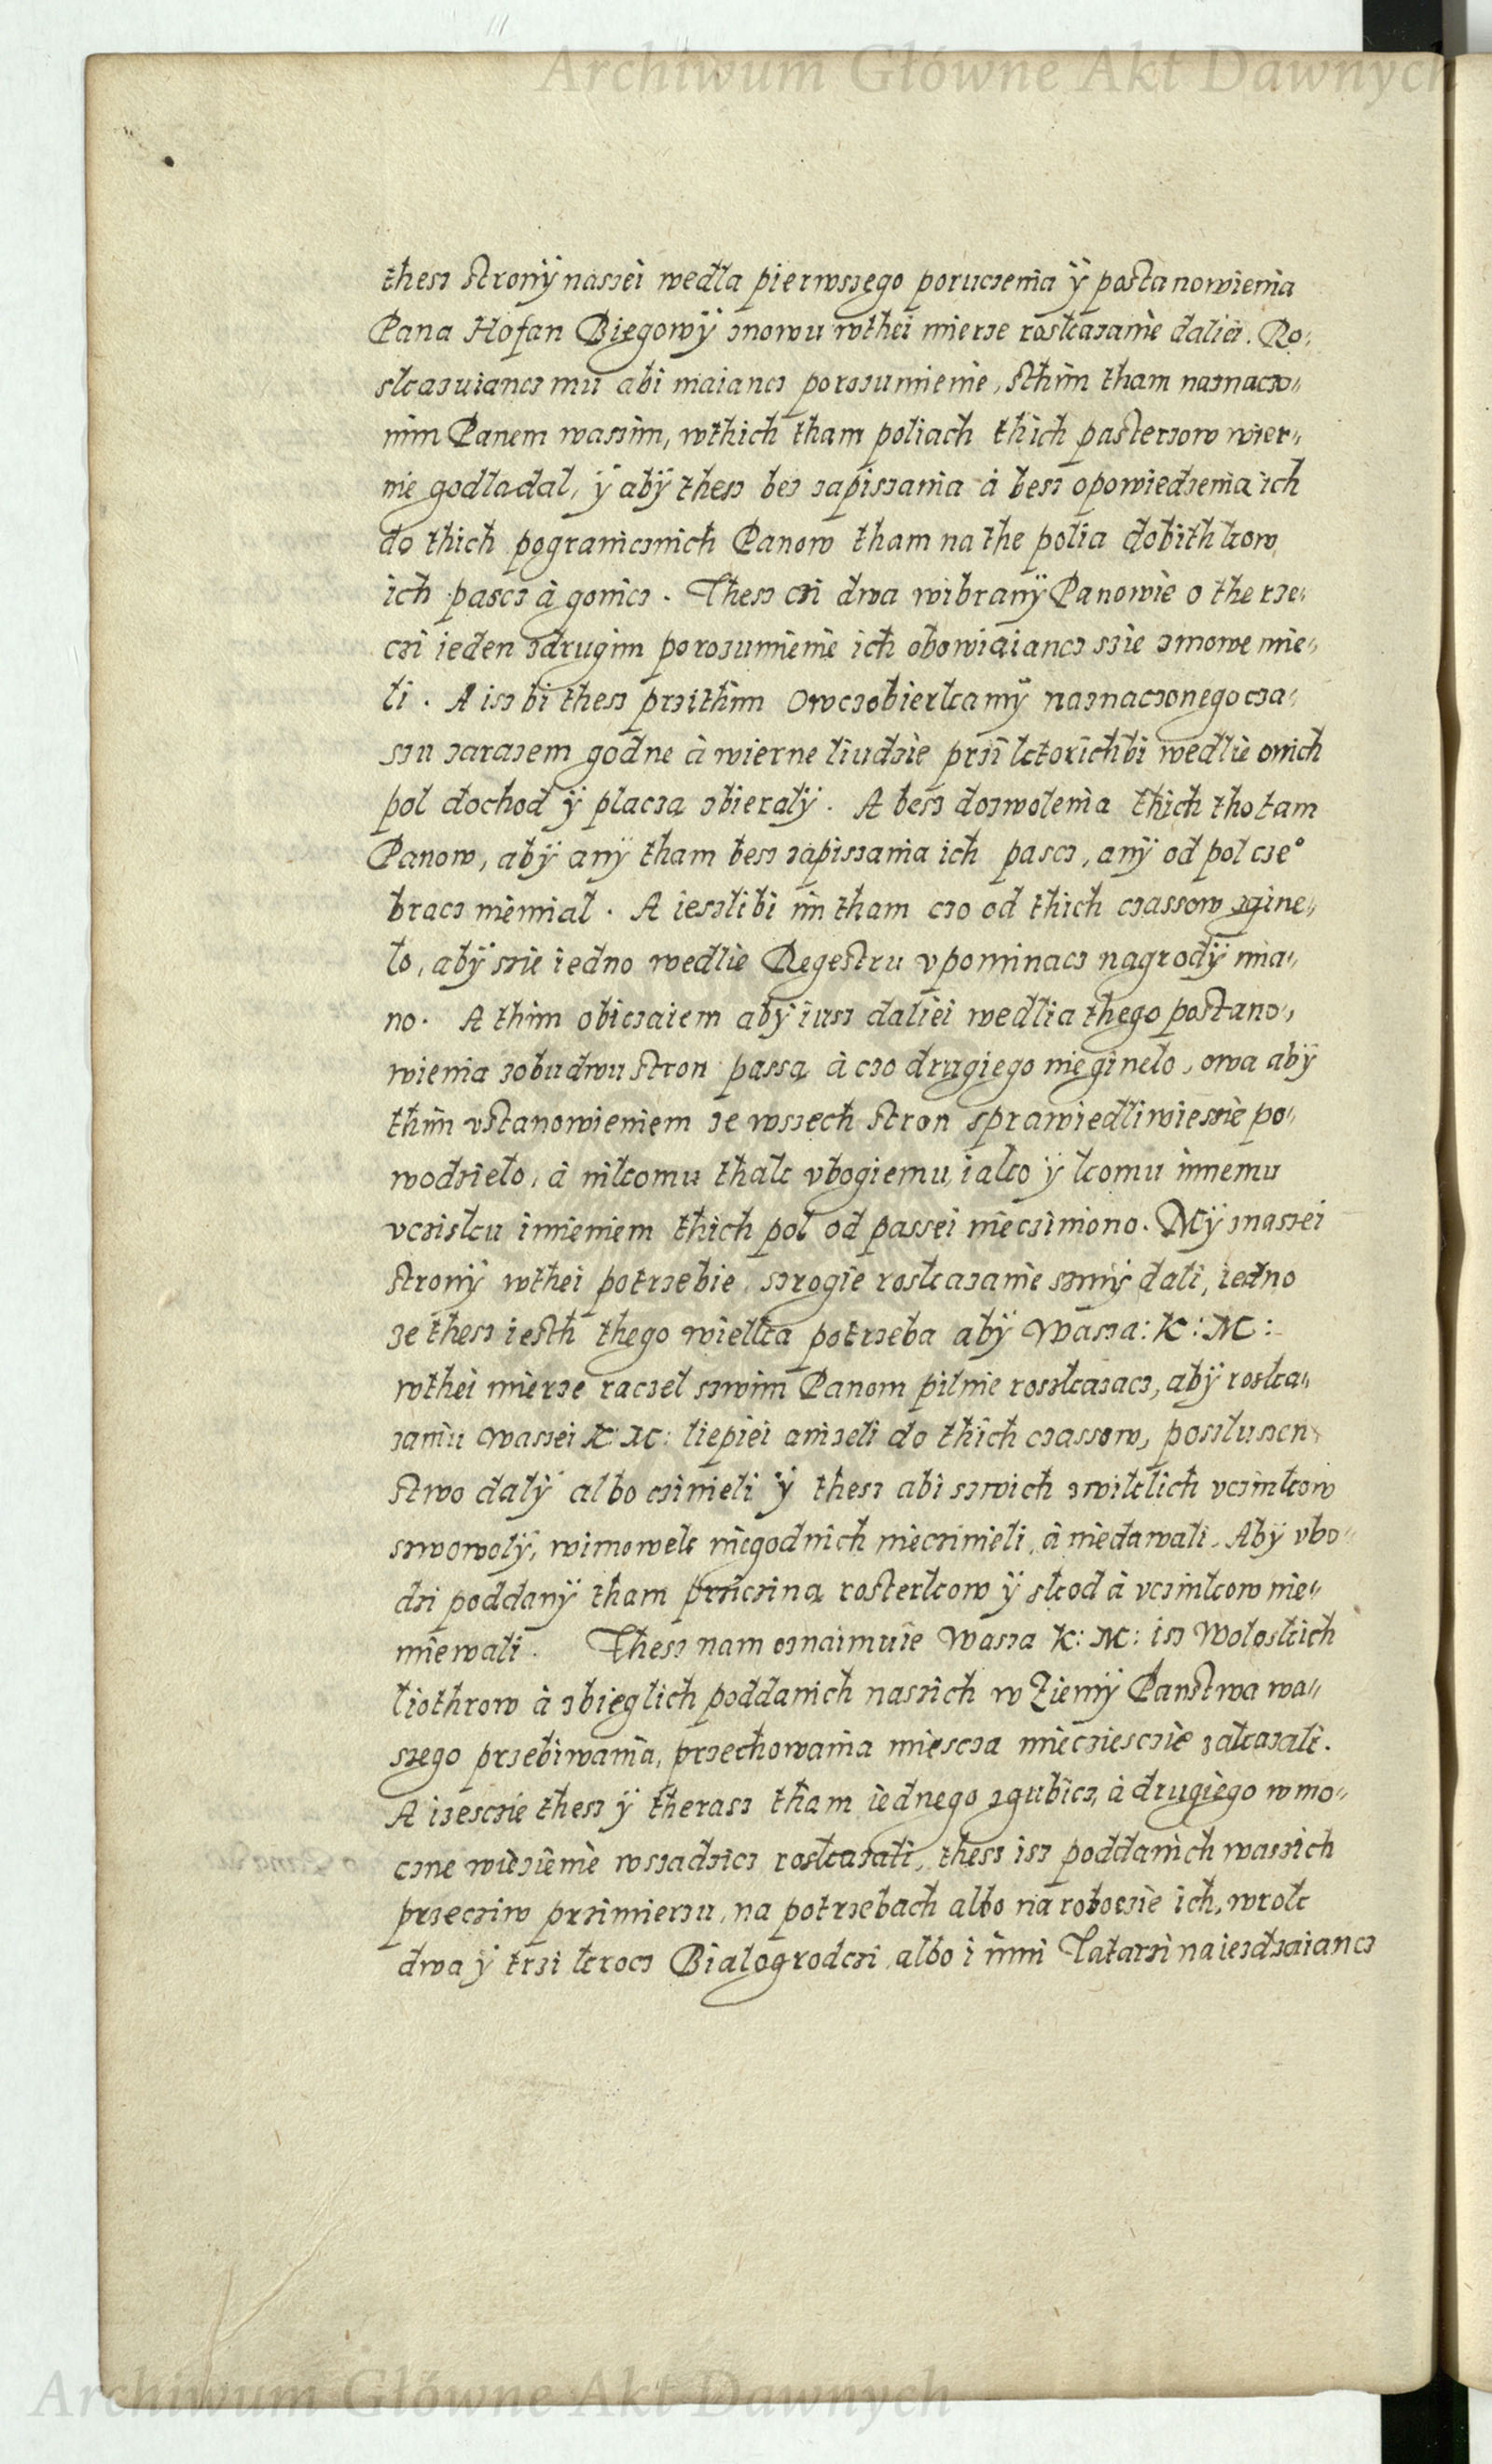 Archiwum Główne Akt Dawnych
thesz stronÿ naszei wedla pierwszego poruczenia ÿ postanowienia
Pana Hosan Biegowÿ znowu wthei mierze roskazanie dalici. Ro:
skazuiancz mu abi maiancz porozumienie, sthim tham naznaczo„
nim Panem waszim, wthich tham poliach thich pasterzow wier„
nie godladal, ÿ abÿ thesz bez zapiszania à besz opowiedzenia ich
do thich pogranicznich Panow tham na the polia dobithkow
ich pascz à gonicz. Thesz czi dwa wibranÿ Panowie o the rze„
czi ieden zdrugim porozumienie ich obowiaiancz szie zmowe mie„
li. A isz bi thesz przithim Owczobierkamÿ naznaczonego cza„
szu zarazem godne à wierne liudzie przi ktorichbi wedlie onich
pol dochod ÿ placza zbieralÿ. A besz dozwolenia thich tho tam
Panow, abÿ anÿ tham besz zapiszania ich pascz, anÿ od pol cze°
bracz niemial. A ieszlibi im tham czo od thich czassow zgine„
lo, abÿ szie iedno wedlie Regestru vpominacz nagrodÿ mia„
no. A thim obiczaiem abÿ iusz daliei wedlia thego postano„
wienia zobudwu stron passa à czo drugiego nie ginelo, owa abÿ
thim vstanowieniem ze wszech stron sprawiedliwie szie po„
wodzielo, à nikomu thak vbogiemu, iako ÿ komu innemu
vczisku imieniem thich pol od passei nieczimiono. Mÿ znaszei
stronÿ wthei potrzebie szrogie roskazanie szmÿ dali, iedno
ze thesz iesth thego wielka potrzeba abÿ Wasza: K: M:
wthei mierze raczel szwim Panom pilnie roszkazacz, abÿ roska„
zaniu Waszei K: M: liepiei anizeli do thich czassow, poszluszen
stwo dalÿ albo czinieli ÿ thesz abi szwich zwiklich vczinkow
szwowolÿ, wimowek niegodnich nieczinieli, à niedawali. Abÿ vbo„
dzi poddanÿ tham przicziną rosterkow ÿ skod à vczinkow nie„
miewali. Thesz nam oznaimuie Wasza K: M: isz Woloskich
liothrow à zbieglich poddanich naszich w Ziemÿ Panstwa wa„
szego przebiwania, przechowania miescza miecziesczie zakazali.
A izesczie thesz ÿ therasz tham iednego zgubicz, à drugiego w mo„
czne wiezienie wszadzicz roskazali, thesz isz poddanich waszich
przecziw przimierzu, na potrzebach albo na roboczie ich, w rok
dwa ÿ trzi krocz Bialogrodczi albo i inni Tatarzi naiezdzaiancz
Archiwum Główne Akt Dawnych